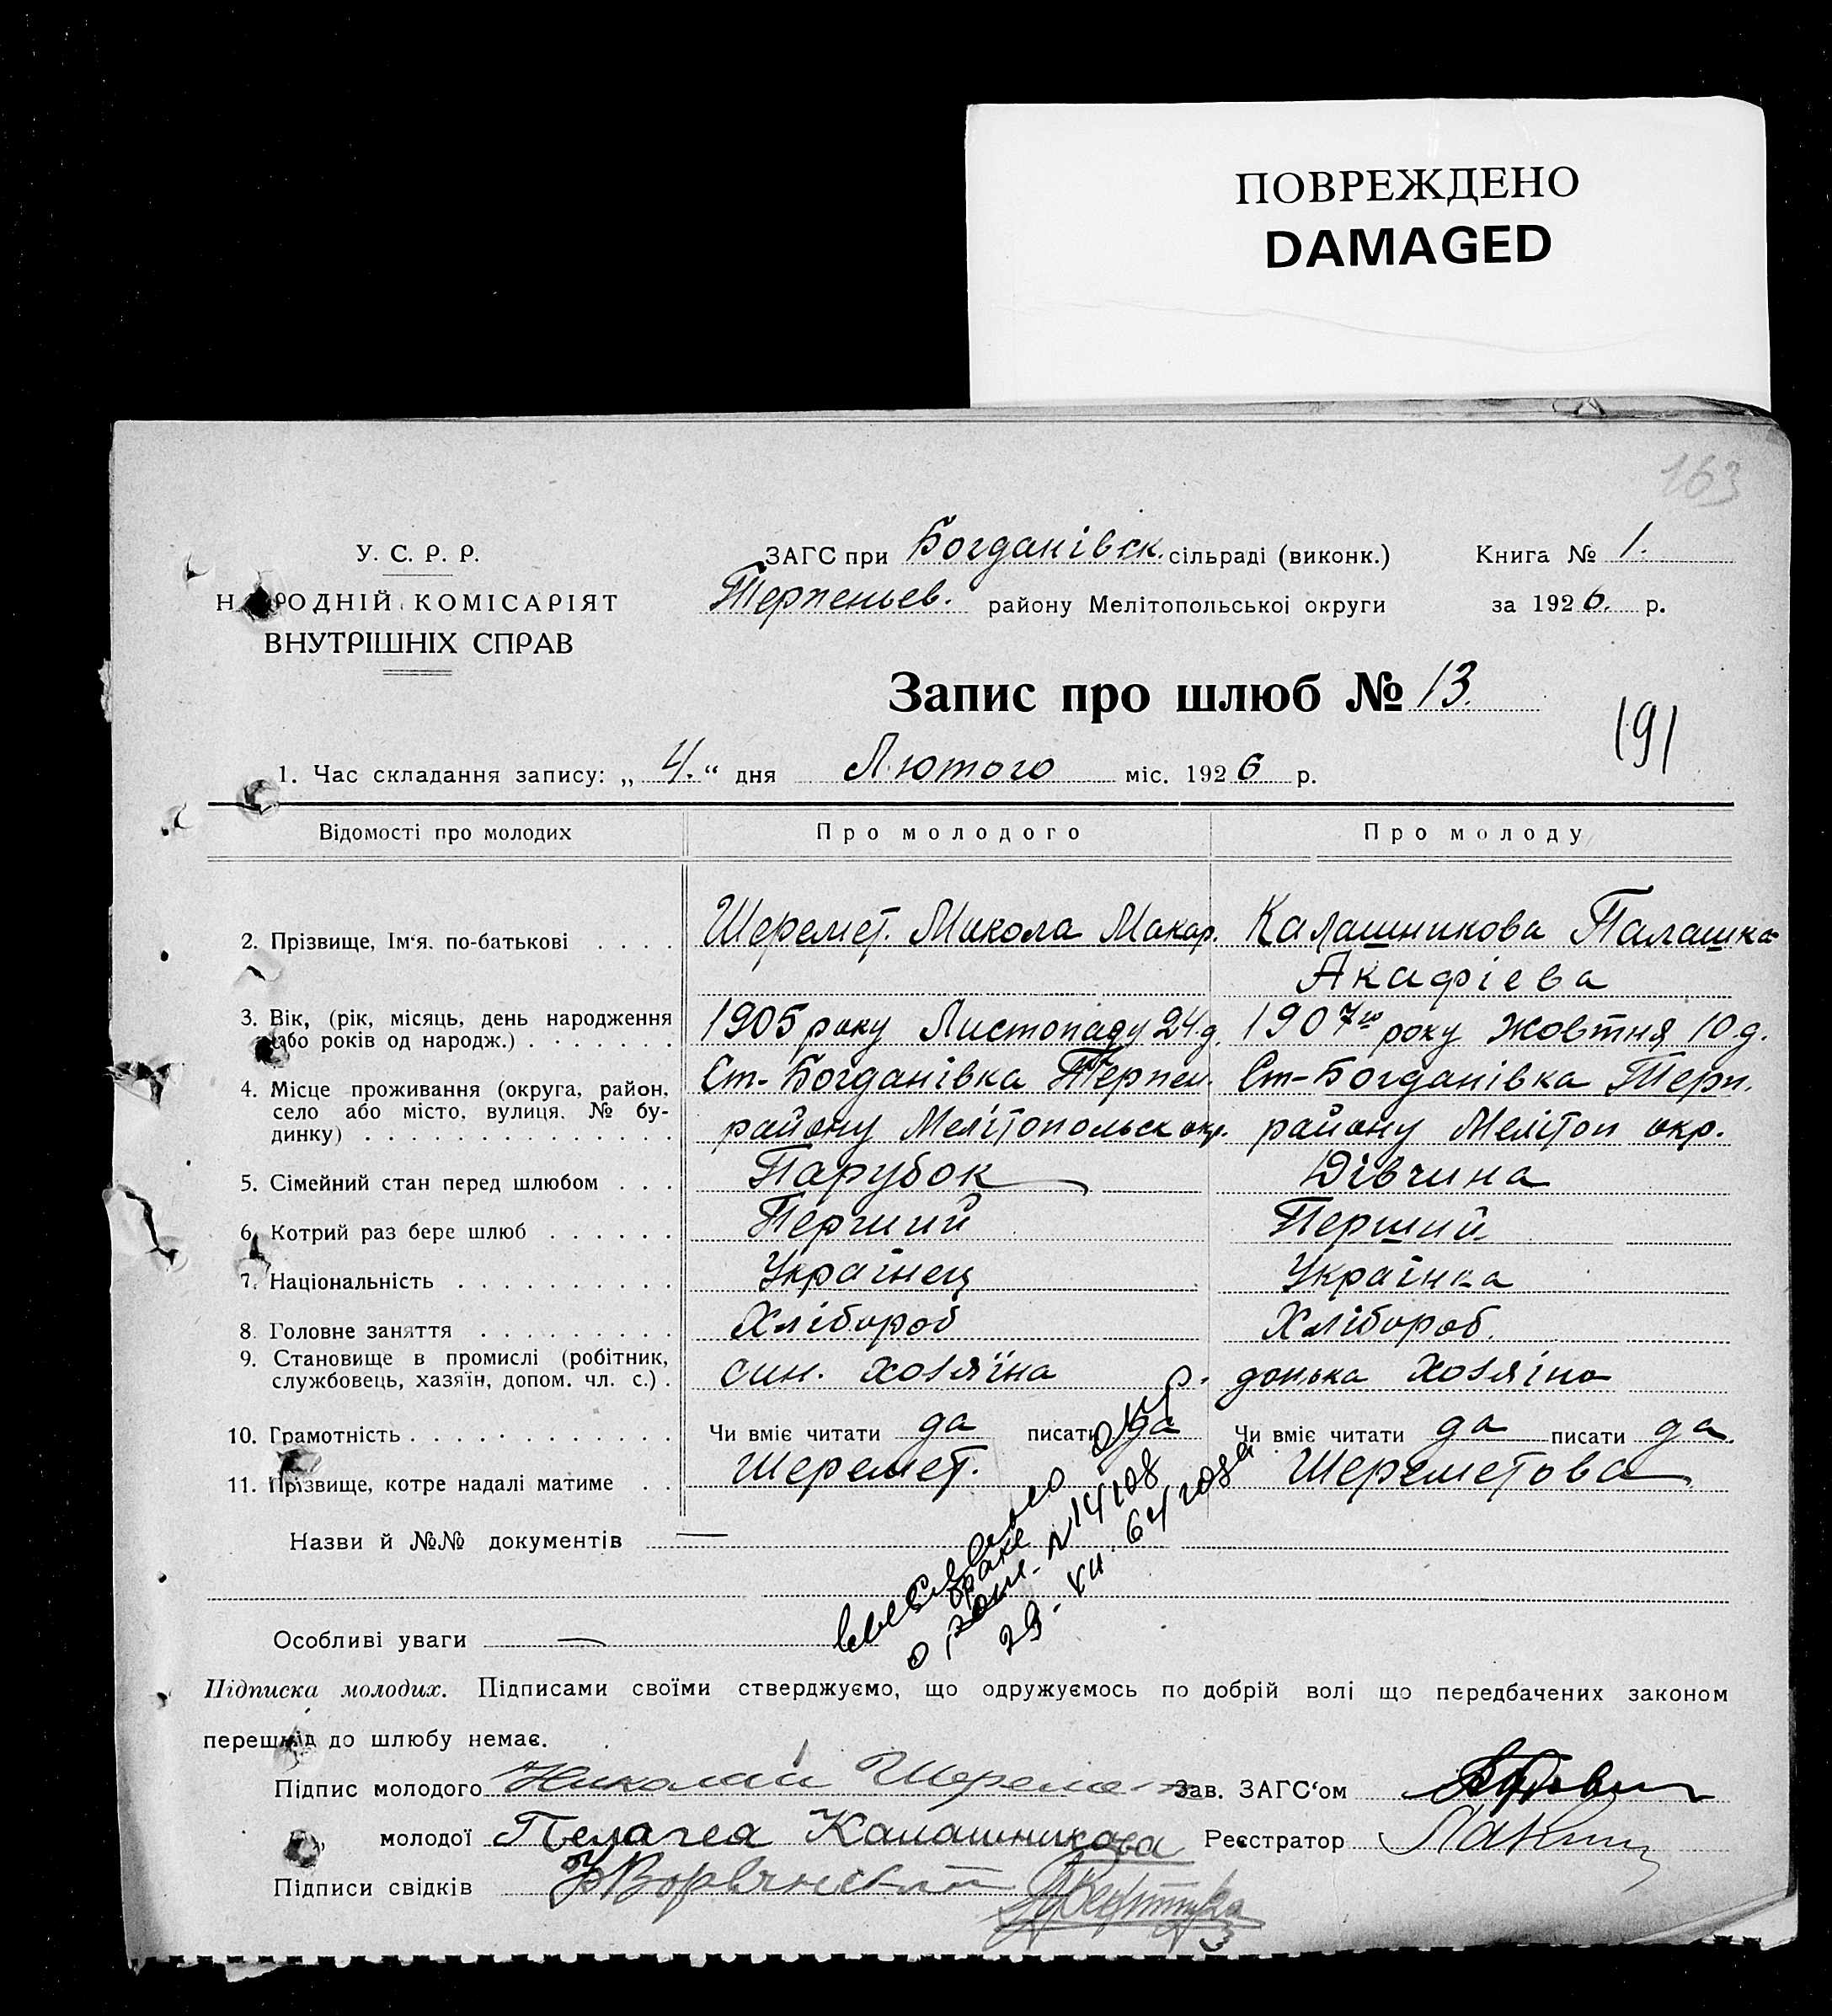 ПОВРЕЖДЕНО
DAMAGED
163
У. С. Р. Р.
НАРОДНІЙ КОМІСАРІЯТ
ВНУТРІШНІХ СПРАВ
ЗАГС при Богданівск. сільраді (виконк.) Книга № 1.
Терпеньев. району Мелітопольської округи за 1926. р.
Запис про шлюб № 13.
191
1. Час складання запису: „ 4. “ дня Лютого міс. 1926 р.
Відомості про молодих Про молодого Про молоду
2. Прізвище, Ім'я. по-батькові . . . . Шеремет. Микола Макар. Калашникова Палашка
Акафіева
3. Вік, (рік, місяць, день народження або років од народж.) 1905 року Листопаду 24 д. 1907го року Жовтня 10 д.
4. Місце проживання (округа, район, Ст-Богданівка Терпен. Ст-Богданівка Терп.
село або місто, вулиця. № бу-
динку) району Мелітопольск окр. району МеліTоп окр.
5. Сімейний стан перед шлюбом . . . Парубок Дівчина
6. Котрий раз бере шлюб Перший Перший
7. Національність Українец Українка
8. Головне заняття Хлібороб Хлібороб.
9. Становище в промислі (робітник, службовець, хазяїн, допом. чл. с.) . син. хозяїна донька хозяїна
10. Грамотність Чи вміє читати да писати да Чи вміє читати да писати да.
11. Прізвище, котре надалі матиме . . Шеремет. Шереметова
Назви й №№ документів —
Особливі уваги —
о браке
N 14108
29. XII. 64 года
Підписка молодих. Підписами своїми стверджуємо, що одружуємось по добрій волі що передбачених законом
перешкід до шлюбу немає.
Підпис молодого Николай Шеремет Зав. ЗАГС'ом
„ молодої Пелагея Калашникова Реєстратор
Підписи свідків